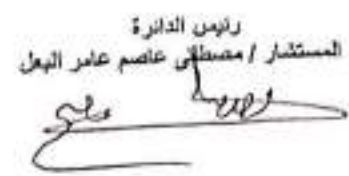 رئيس الدائرة
المستشار / مصطفى عاصم عامر البعل